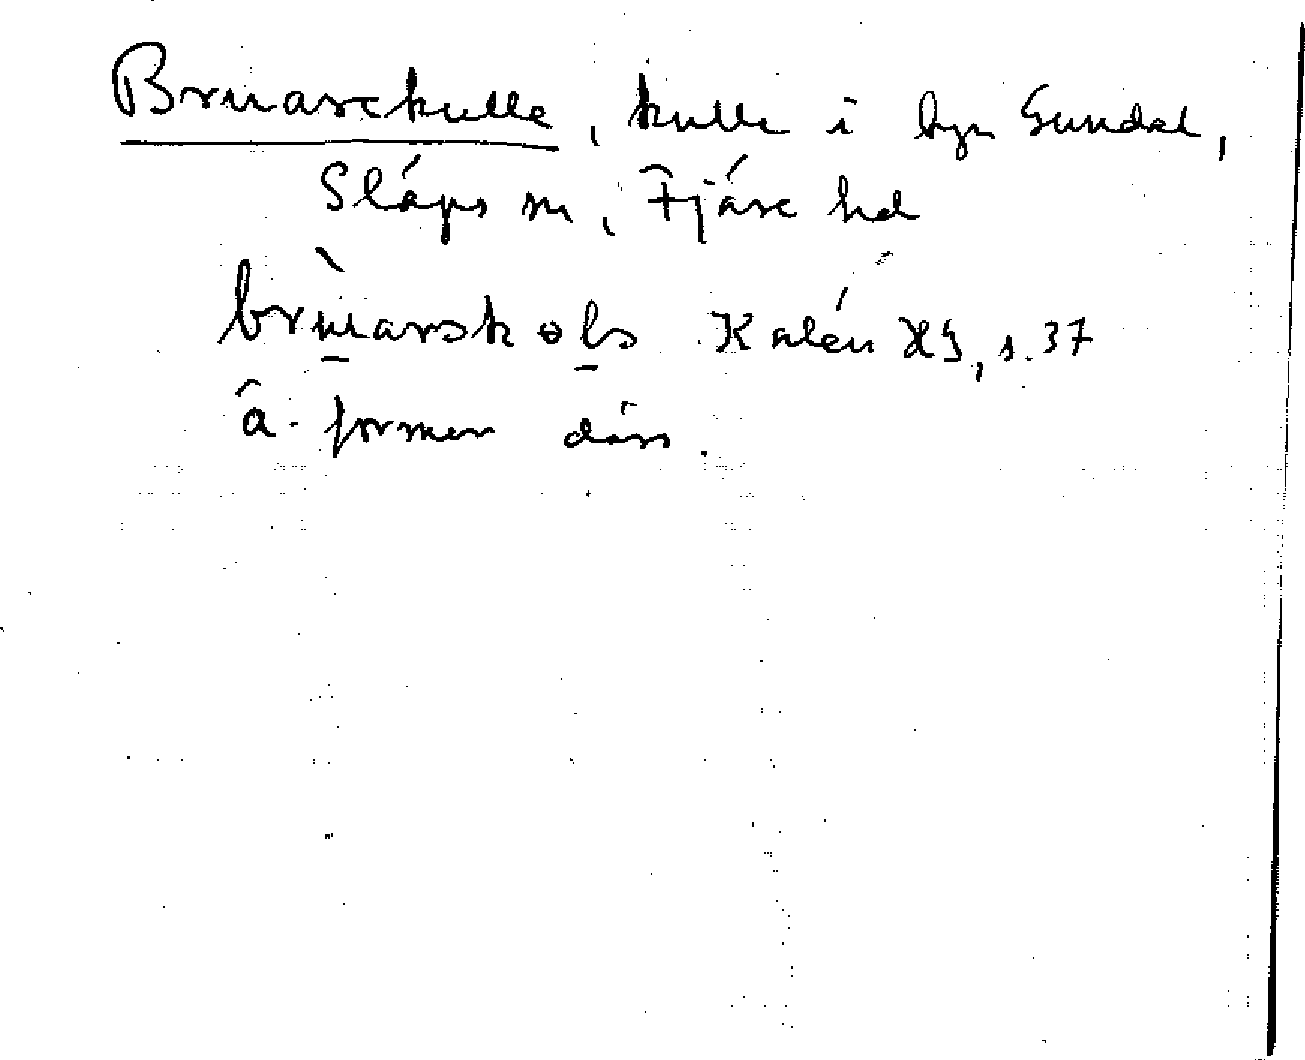 Bruarekulle, kulle i byn Gundal,
Släps sn, Fjäre hd
brùarskolo Kalén HG, s. 37
â-formen därs.